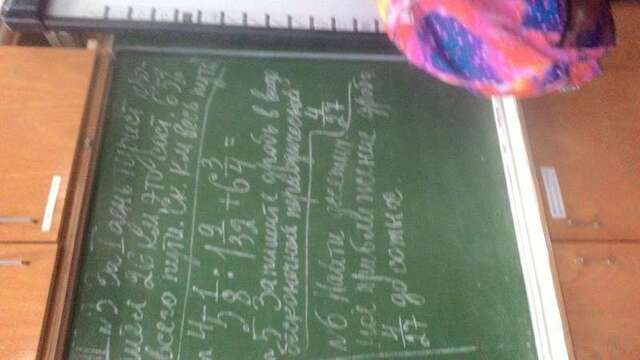 n3 За 1 день турист про-
шёл 26 км, это был 65%
всего пути. Ск. км весь путь?
n 4 5 1/8 : 1 9/32 + 6 3/4 =
n5 Запишите дробь в виде
бесконечной периодической
4/27
n6 Найти десятич
ное приближение дробь
4/27 до сотых